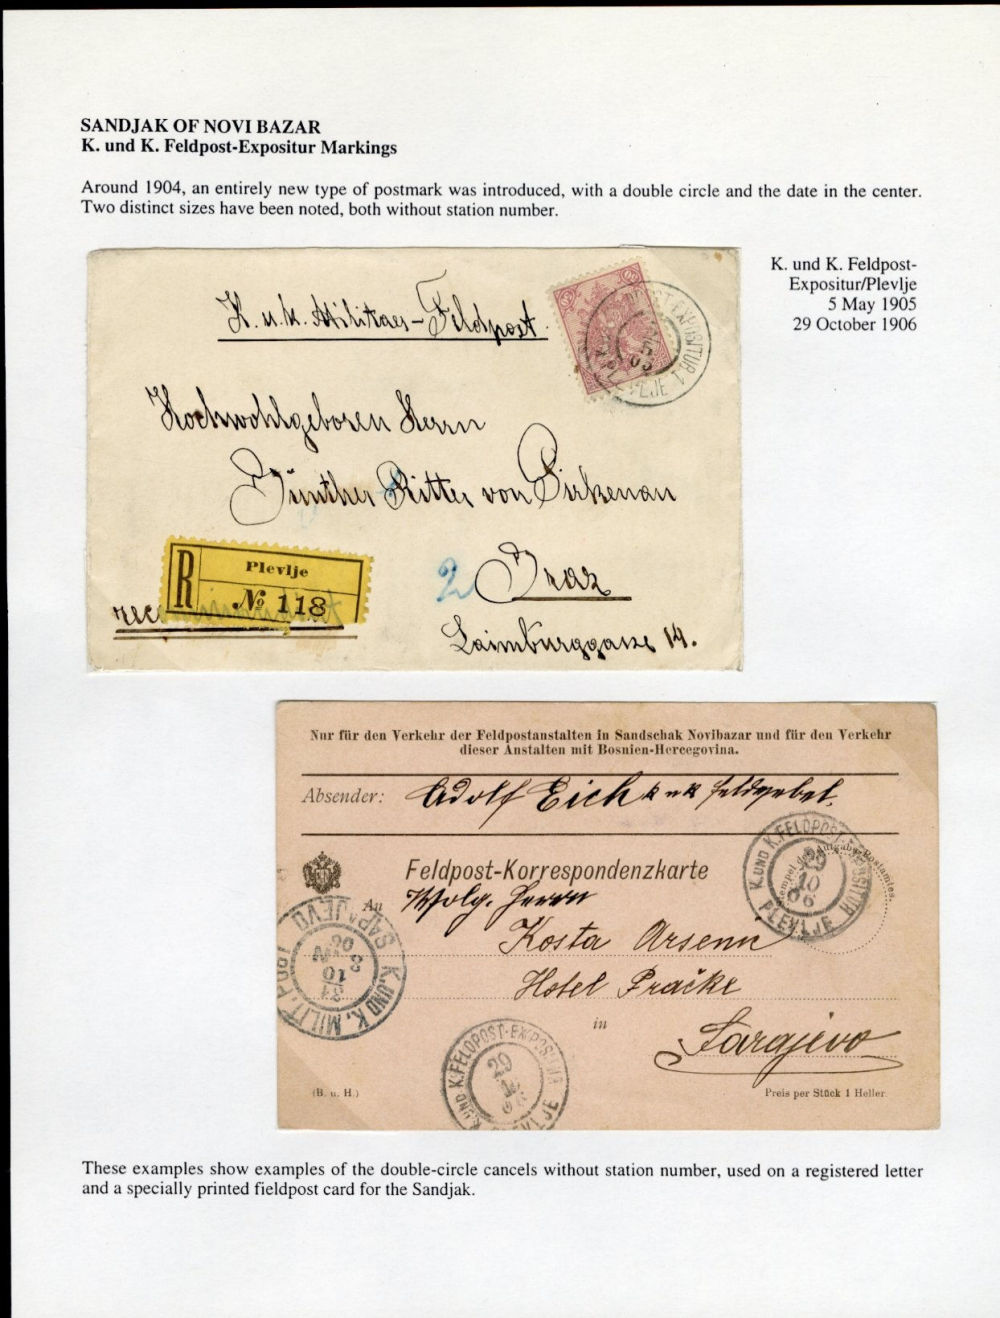 SANDJAK OF NOVI BAZAR
K. und K. Feldpost-Expositur Markings
Around 1904, an entirely new type of postmark was introduced, with a double circle and the date in the center.
Two distinct sizes have been noted, both without station number.
K. und K. Feldpost-
Expositur/Plevlje
5 May 1905
29 October 1906
K. u. k. Militaer-Feldpost.
Hochwohlgeboren Herrn
Günther Ritter von Pirkenau
Graz
Laimburggasse 19.
2
R
Plevlje
№ 118
Nur für den Verkehr der Feldpostanstalten in Sandschak Novibazar und für den Verkehr
dieser Anstalten mit Bosnien-Hercegovina.
Absender: Adolf Eich k u k Feldwebel.
K. UND K. FELDPOST-EXPOSITUR
29
10
06
PLEVLJE
Feldpost-Korrespondenzkarte
An
Kosta Arsenu
Hotel Pračke
in
Sarajevo
K. UND K. MILIT. POST
SARAJEVO
31
10
06
K. UND K. FELDPOST-EXPOSITUR
29
06
PLEVLJE
(B. u. H.)
Preis per Stück 1 Heller.
These examples show examples of the double-circle cancels without station number, used on a registered letter
and a specially printed fieldpost card for the Sandjak.